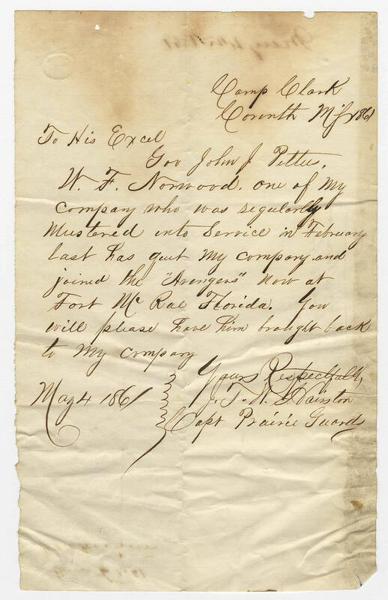 Camp Clark
Corinth Mi 1861
To His Excel
Gov John J Pettus,
W. F. Norwood. one of My
Company who was regularly
Mustered into Service in February
last has quit My Company and
joined the "Avengers" Now at
Fort Mc Rae Florida. You
will please have him brought back
to My Company
Yours Respectfully
May 4 1861
Capt Prairie Guards